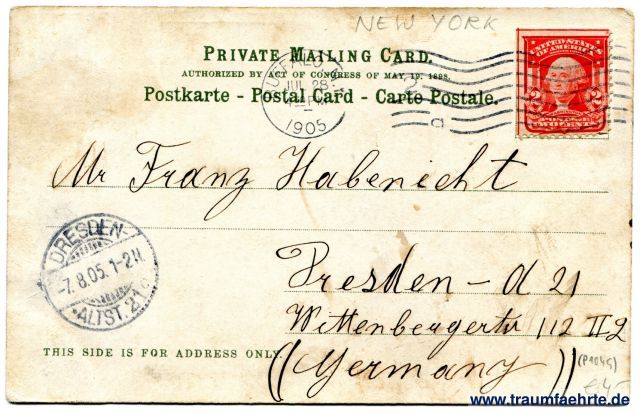 NEW YORK
PRIVATE MAILING CARD.
AUTHORIZED BY ACT OF CONGRESS OF MAY 19, 1898.
Postkarte - Postal Card - Carte Postale.
BUFFALO, N.Y.
JUL 28
1905
UNITED STATES OF AMERICA
2 2
TWO CENTS
Mr Franz Habenicht
DRESDEN-
-7.8.05. 1-2N.
*ALTST. 21 c
Dresden - d 21
Wittenbergerstr 112 II 2
THIS SIDE IS FOR ADDRESS ONLY.
((Germany))
www.traumfaehrte.de